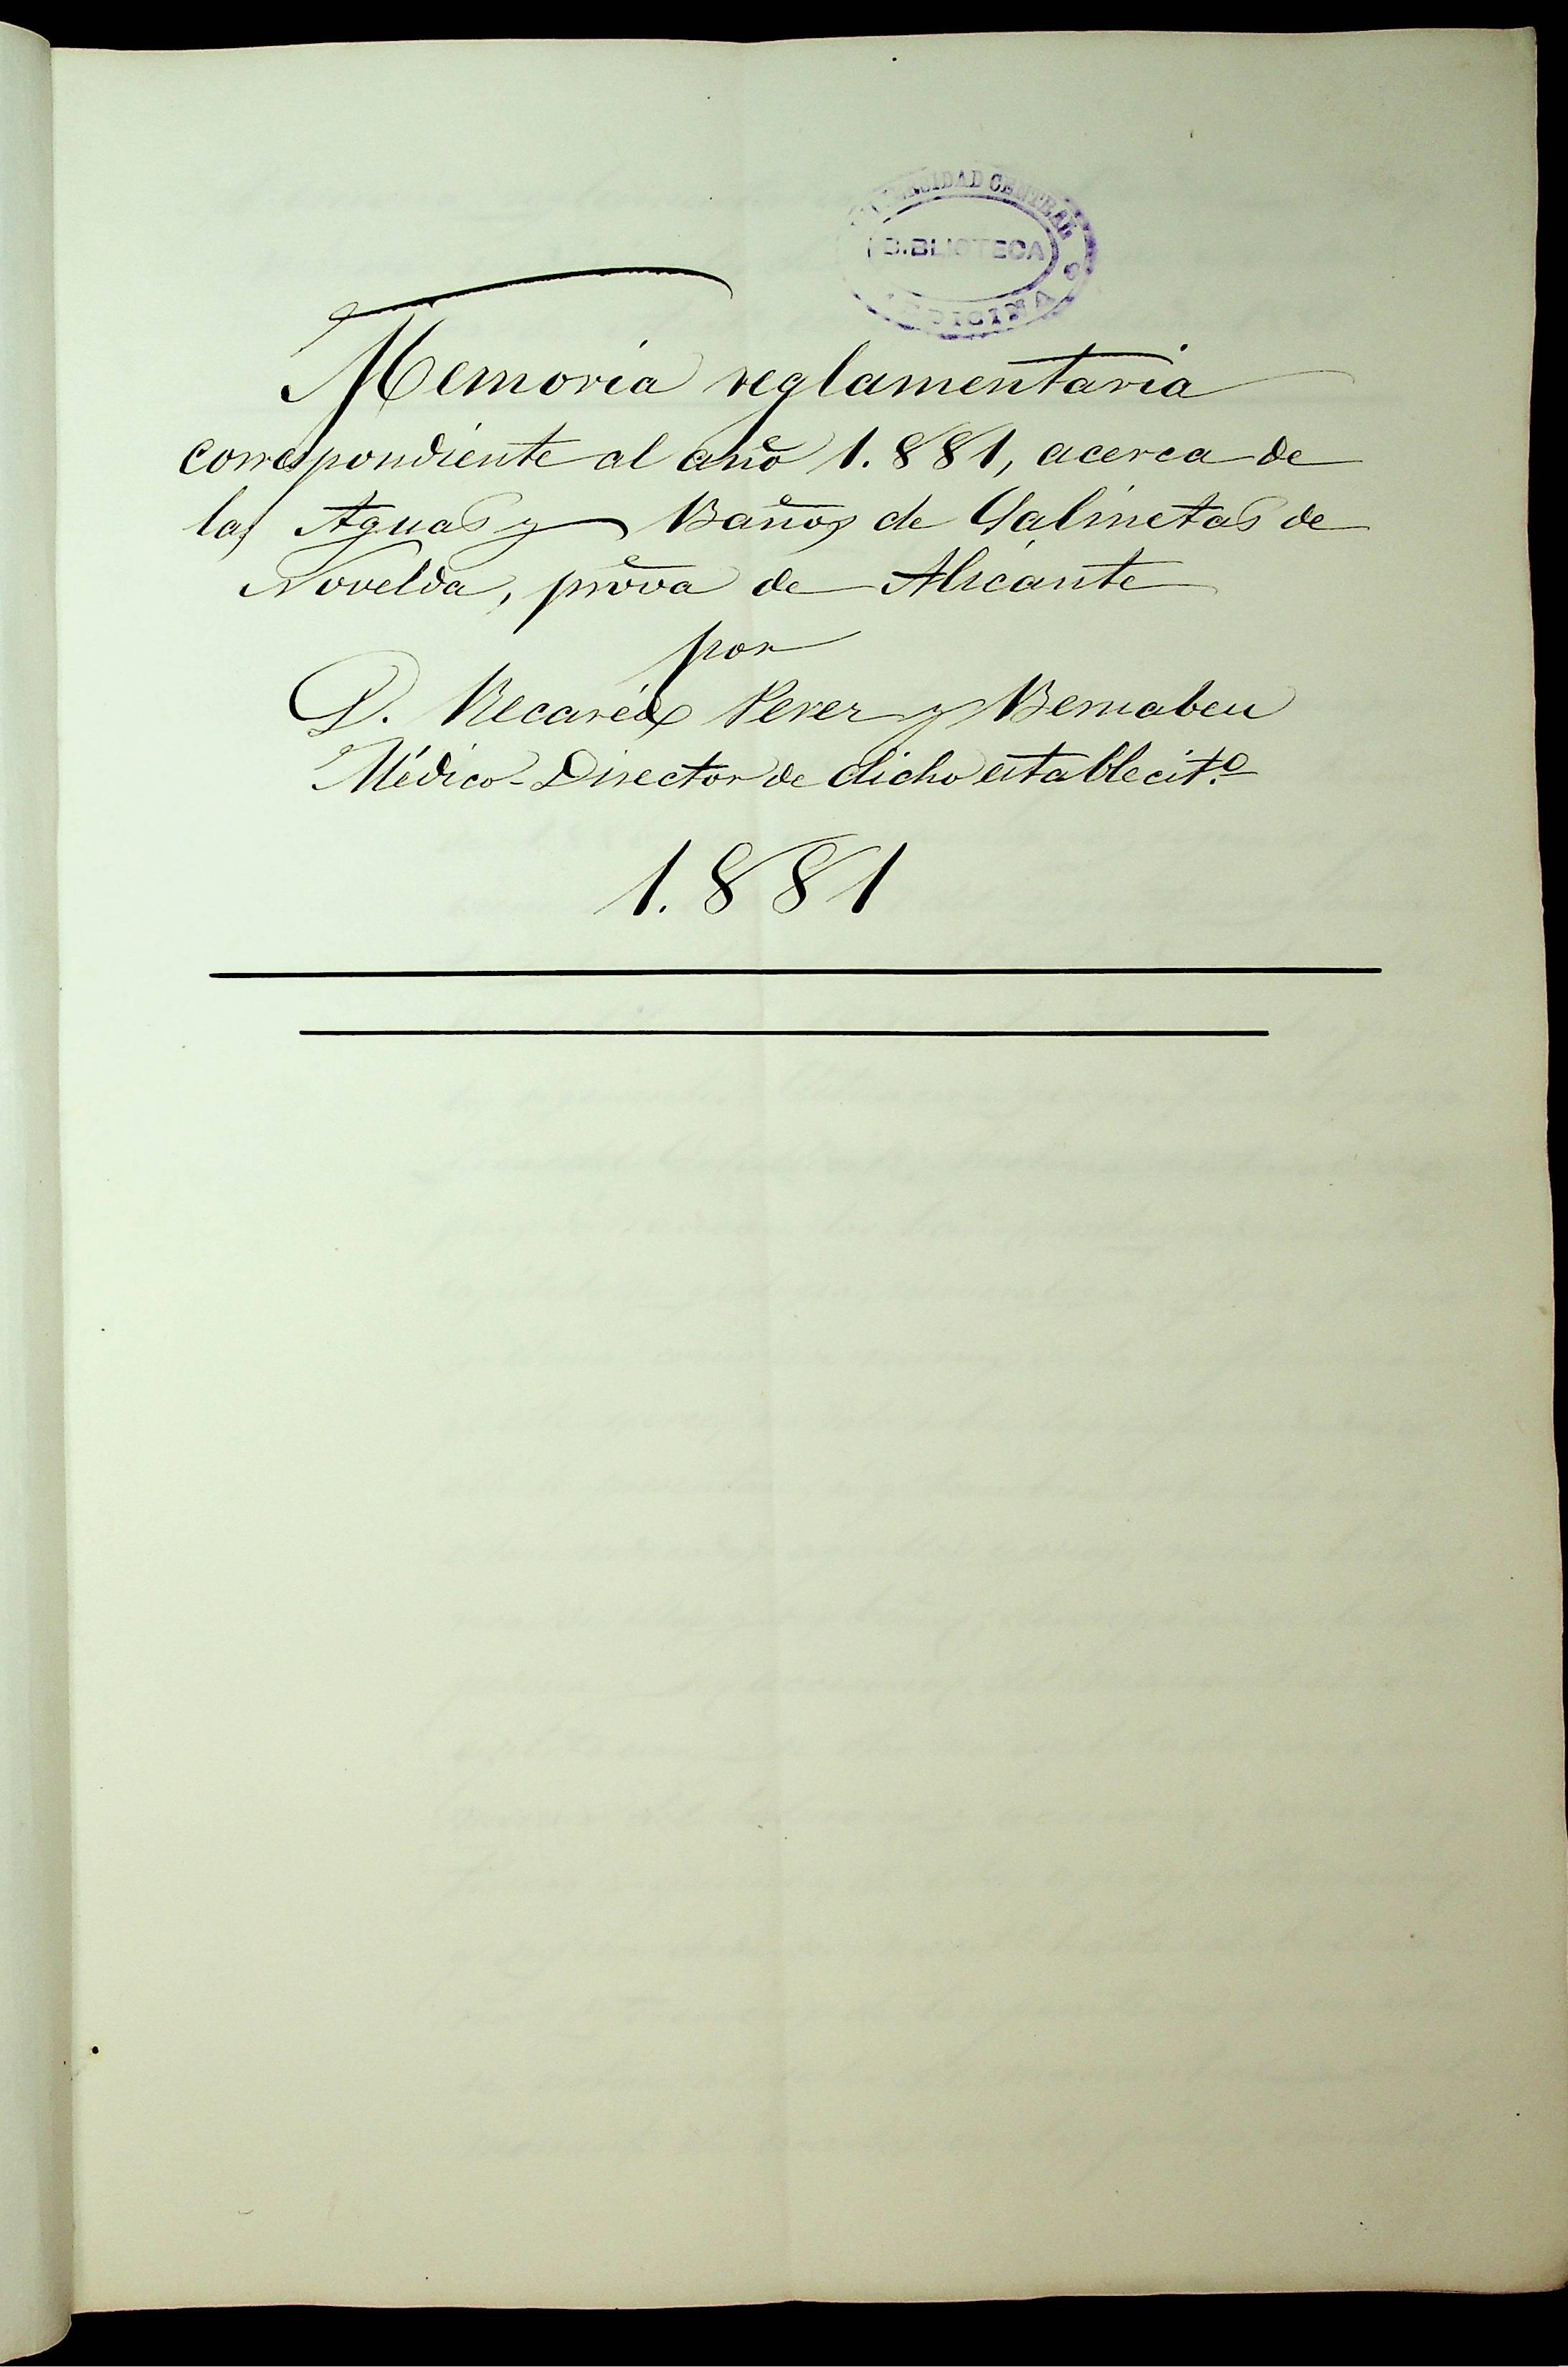 UNIVERSIDAD CENTRAL
BIBLIOTECA
MEDICINA
Memoria reglamentaria
correspondiente al año 1.881, acerca de
las Aguas y Baños de Salinetas de
Novelda, prov̄a de Alicante
por
D. Recaredo Perez y Bernabeu
Médico-Director de dicho establecit.º
1.881